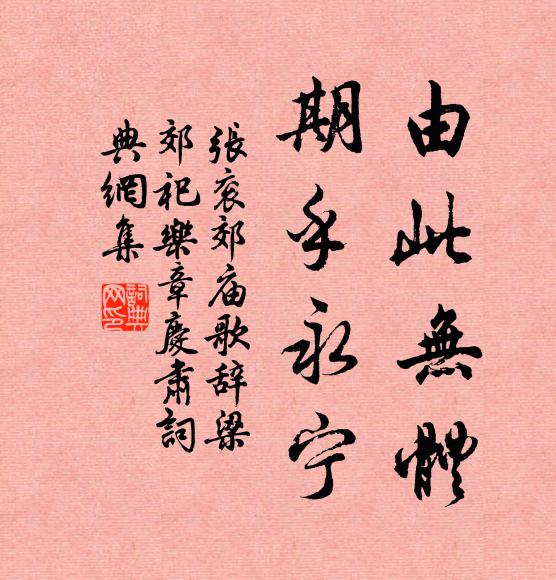 由此無體
期乎永宁
張衮郊庙歌辞梁
郊祀樂章慶肅詞
典網集
詞典網印